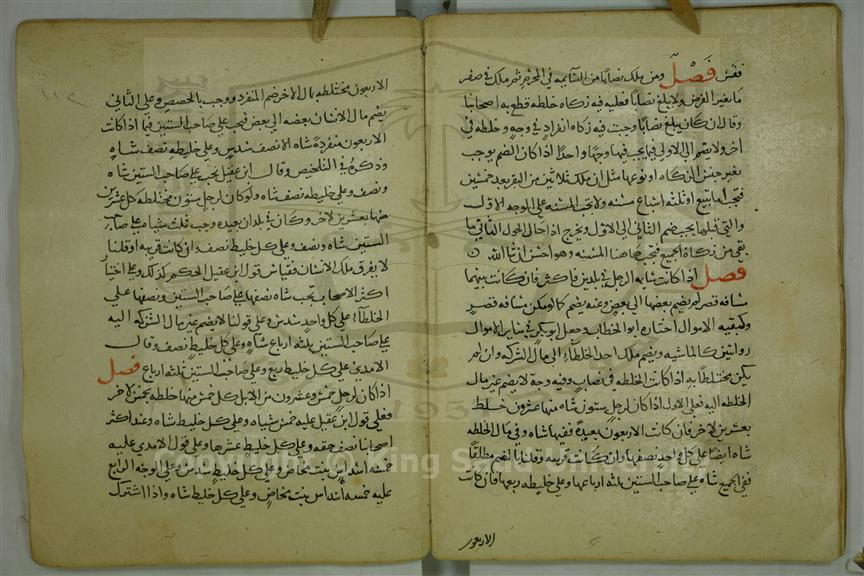 فقس فصل ومن ملك نصابا من السائمه في المحرم ثم ملك في صفر
ما يغير الفرض ولا يبلغ نصابا فعليه فيه زكاه خلطه قطع به اصحابنا
وقال ان كان يبلغ نصابا وجبت فيه زكاه انفراد في وجه وخلطه في
اخر ولا يضم الى الاول فيما يجب فيهما وجها واحدا اذا كان الضم يوجب
بغير جنس الزكاه او نوعها مثل ان ملك ثلاثين من البقر بعد خمسين
فتجب اما تبيع او ثلثه اتباع مسنه ولا تجب المسنه على الوجه الاول
والتي قبلها يجب ضم الثاني الى الاول ويخرج اذا حال الحول الثاني ما
بقي من زكاة الجميع فتجب هاهنا المسنه وهو احسن ان شا الله
فصل اذا كانت شابه الرجل في بلدين فاكثر فان كانت بينهما
مسافه قصر لم يضم بعضها الى بعض وعنه يضم كما لو يكن مسافه قصر
وكبقيه الاموال اختاره ابو الخطاب وجعل ابو بكر في سائر الاموال
روايتين كالماشيه ويضم ملك احد الخلطاء الى مال الشركه وان لم
يكن مختلطا به اذا كانت الخلطه في نصاب وفيه وجه لا يضم غير مال
الخلطه اليه فعلى الاول اذا كان لرجل ستون شاه منها عشرون خلط
بعشرين لاخر فان كانت الاربعون بعيدة ففيها شاه وفي مال الخلطه
شاه ايضا على كل واحد نصفها وان كانت قريبه وقلنا بالضم مطلقا
ففي الجميع شاه على صاحب الستين ثلثه ارباعها وعلى خليطه ربعها فان كانت
الاربعون
الاربعون مختلطه بمال الاخر ضم المنفرد ووجب بالحصص وعلى الثاني
يضم مال الانسان بعضه الى بعض فيجب على صاحب الستين فيما اذا كانت
الاربعون منفردة شاه الا نصف سدس وعلى خليطه نصف شاه
وذكره في التلخيص وقال ابن عقيل يجب على صاحب الستين شاه
ونصف وعلى خليطه نصف شاه ولو كان لرجل ستون مختلطه كل عشرين
منها بعشرين لاخر وكان في بلدان بعيده وجب ثلث شياه على صاحب
الستين شاه ونصف وعلى كل خليط نصف وان كانت قريبه او قلنا
لا يفرق ملك الانسان فقياس قول ابن عقيل الحكم كذلك وعلى اختيار
اكثر الاصحاب تجب شاه نصفها على صاحب الستين ونصفها على
الخلطاء على كل واحد سدس وعلى قولنا لا يضم غير مال الشركه اليه
على صاحب الستين ثلثه ارباع شاه وعلى كل خليط نصف وقال
الامدي على كل خليط ربع وعلى صاحب الستين ثلثه ارباع فصل
اذا كان لرجل خمس وعشرون من الابل كل خمس منها خلطه بخمس لاخر
فعلى قول ابن عقيل عليه خمس شياه وعلى كل خليط شاه وعند اكثر
اصحابنا نصف حقه وعلى كل خليط عشرها وعلى قول الامدي عليه
خمسه اسداس بنت مخاض وعلى كل خليط سدس وعلى الوجه الرابع
عليه خمسه اسداس بنت مخاض وعلى كل خليط شاه واذا اشترك
Copyright © King Saud University
195